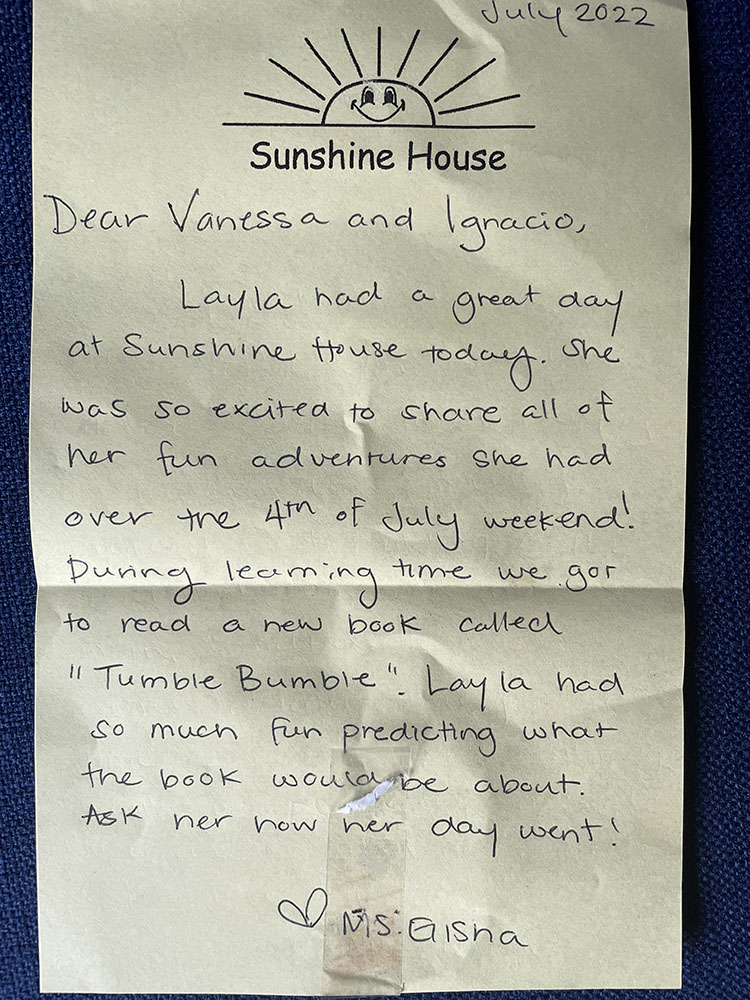 July 2022
Sunshine House
Dear Vanessa and Ignacio,
Layla had a great day
at Sunshine House today. She
was so excited to share all of
her fun adventures she had
over the 4th of July weekend!
During learning time we got
to read a new book called
"Tumble Bumble". Layla had
so much fun predicting what
the book would be about.
Ask her how her day went!
♡ Ms. Gisha